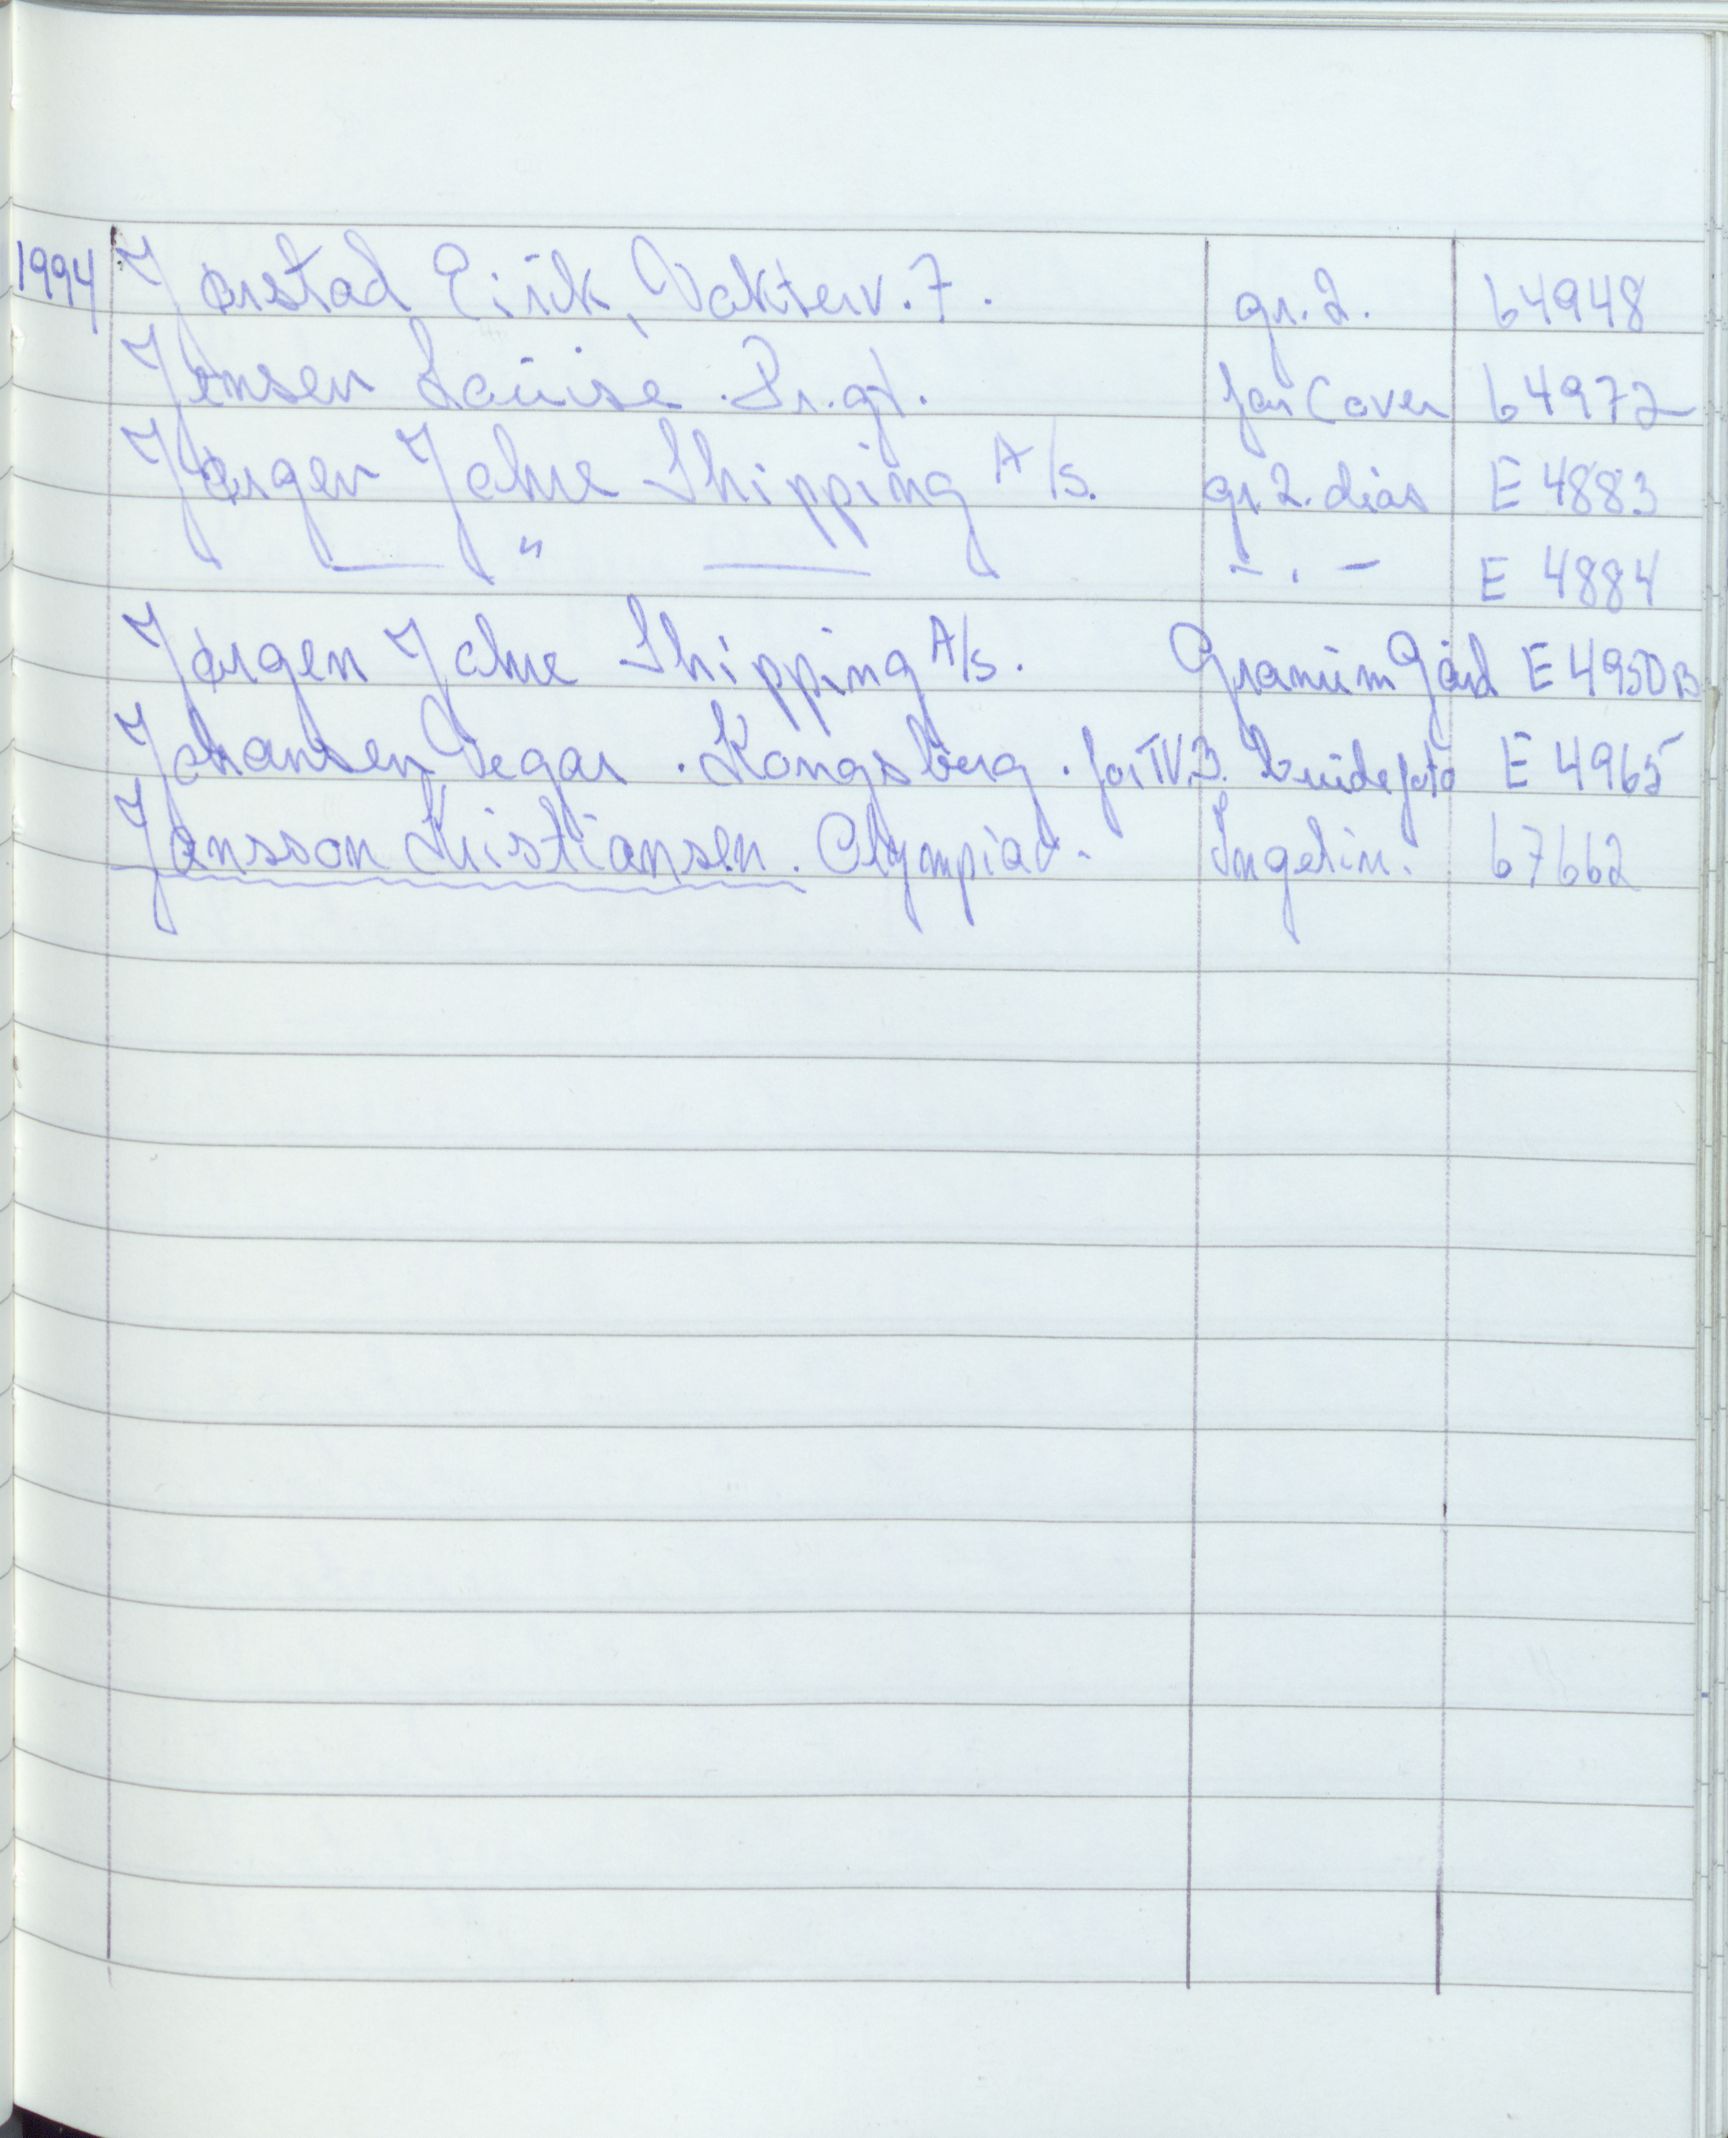 1994 Jørstad Eirik, Vokterv. 7. gr. 2. 64948
Jensen Louise. Pr.gt. for Cover 64972
Jørgen Jahre Shipping A/s. gr. 2. dias E 4883
— " — – . – E 4884
Jørgen Jahre Shipping A/s. Granum Gård E 4950B
Johansen Vegar. Kongsberg. for TV.3. Brudefoto E 4965
Jansson Kristiansen. Olympiad. Ingelin. 67662